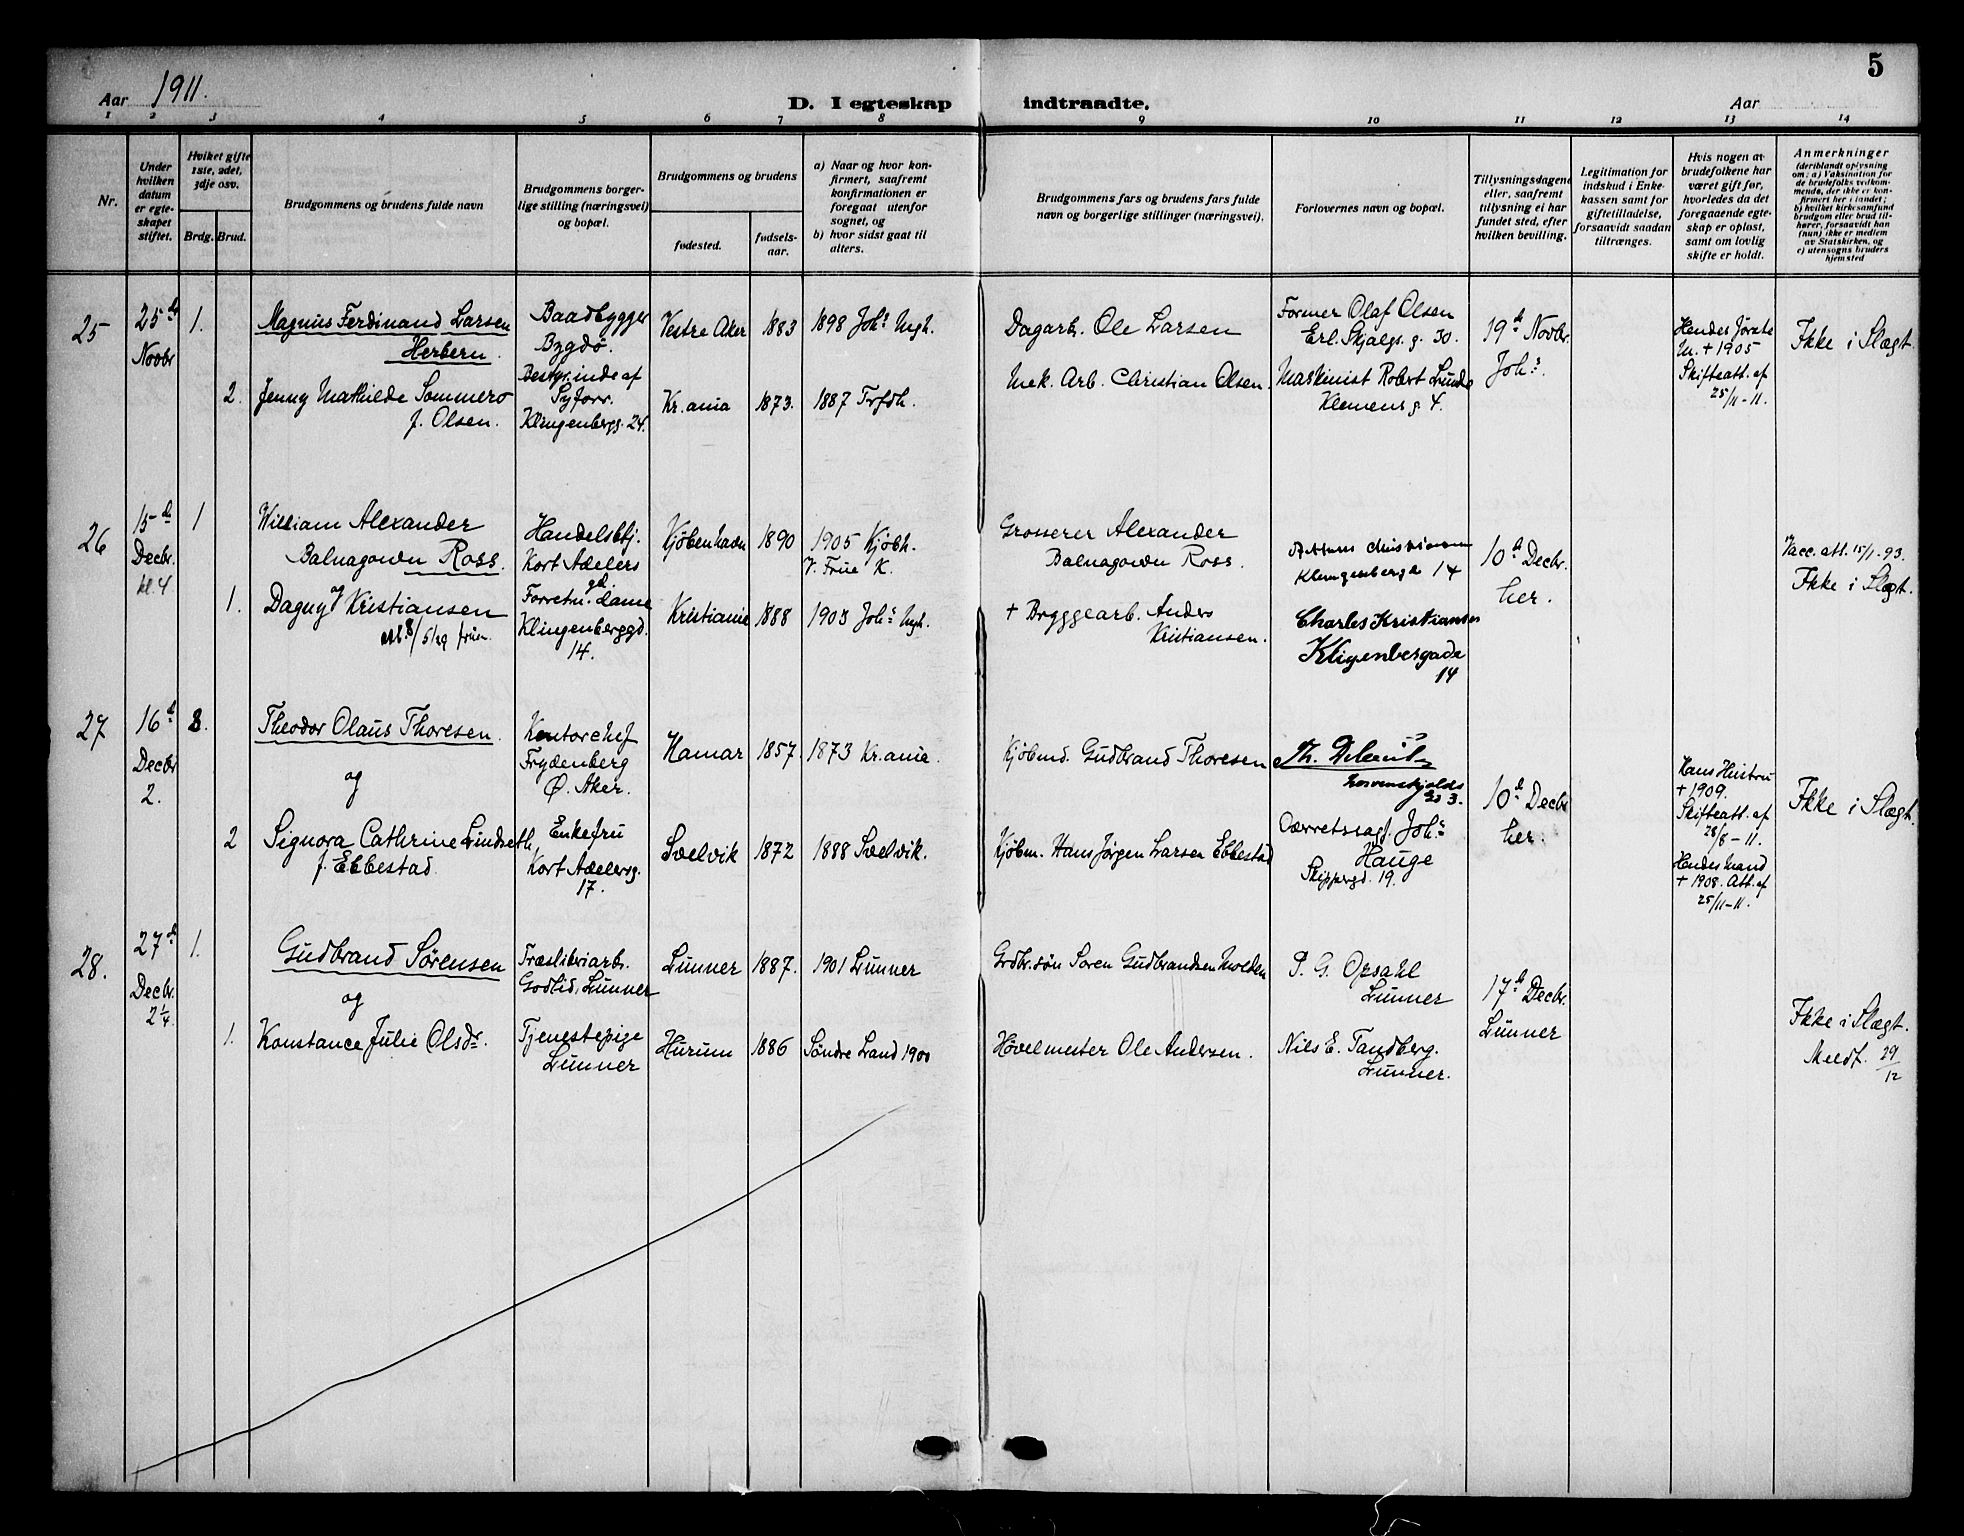 5
Aar 1911.
D. I egteskap indtraadte.
Aar
1 2 3 4 5 6 7 8 9 10 11 12 13 14
Nr.
Under hvilken datum er egteskapet stiftet.
Hvilket gifte 1ste, 2det, 3dje osv.
Brdg. Brud.
Brudgommens og brudens fulde navn
Brudgommens borgerlige stilling (næringsvei) og bopæl.
Brudgommens og brudens
fødested.
fødselsaar.
a) Naar og hvor konfirmert, saafremt konfirmationen er foregaat utenfor sognet, og
b) hvor sidst gaat til alters.
Brudgommens fars og brudens fars fulde navn og borgerlige stillinger (næringsvei).
Forlovernes navn og bopæl.
Tillysningsdagene eller, saafremt tillysning ei har fundet sted, efter hvilken bevilling.
Legitimation for indskud i Enkekassen samt for giftetilladelse, forsaavidt saadan tiltrænges.
Hvis nogen av brudefolkene har været gift før, hvorledes da det foregaaende egteskap er opløst, samt om lovlig skifte er holdt.
Anmerkninger (deriblandt oplysning om: a) Vaksination for de brudefolks vedkommende, der ikke er konfirmert her i landet; b) hvilket kirkesamfund brudgom eller brud tilhører, forsaavidt han (hun) ikke er medlem av Statskirken, og c) utensogns bruders hjemsted
25
25de Novbr
1.
Magnus Ferdinand Larsen
Herbern.
Baadbygger
Bygdø.
Vestre Aker
1883
1898 Johs Mgh.
Dagarb. Ole Larsen
Former Olaf Olsen
Erl. Skjalgs. g. 30.
19de Novbr.
Johs.
Hendes første
M. + 1905
Skifteatt. af
25/11-11.
Ikke i Slægt.
2.
Jenny Mathilde Sommero
f. Olsen.
Bestyr.inde af
Syforr.
Klingenbergg. 24.
Kr.ania
1873.
1887 Trfdh.
Mek. Arb. Christian Olsen.
Maskinist Robert Lunde
Klemens g. 4.
26
15de Decbr. kl. 4
1
William Alexander
Balnagown Ross.
Handelsbtj.
Kort Adelers
gd.
Kjöbenhavn
1890
1905 Kjøbh.
V. Frue K.
Grosserer Alexander
Balnagown Ross.
Christiansen
Klingenbergd 14
10de Decbr.
her.
Vacc. att. 15/1-93.
Ikke i Slægt.
1.
og
Dagny Kristiansen
Forretn. dame
Klingenberggd.
14.
Kristiania
1888
1903 Johs Mgh.
+ Bryggearb. Anders
Kristiansen.
Charles Kristiansen
Kligenbergade
14
27
16de Decbr 2.
Theodor Olaus Thoresen.
og
Kontorchef
Frydenberg
Ø. Aker.
Hamar
1857.
1873 Kr.ania.
Kjöbmd. Gudbrand Thoresen
3.
10de Decbr
her.
Hans Hustru
+ 1909.
Skifteatt. af
28/8-11.
Hendes Mand
+ 1908. Att. af
25/11-11.
Ikke i Slægt.
2
Signora Cathrine Lindseth
f. Ebbestad.
Enkefru
Kort Adelersg.
17.
Svelvik
1872
1888 Svelvik.
Kjöbm. Hans Jörgen Larsen Ebbestad
Overretssagf. Johs
Hauge
Skippergd. 19.
28.
27de Decbr. 2 1/4.
1.
Gudbrand Sørensen
og
Træsliberiarb.
Godlid, Lunner
Lunner
1887.
1901 Lunner
Grdbr.søn Soren Gudbrandsen Molden
P. G. Opsahl
Lunner
17de Decbr.
Lunner
Ikke i Slægt.
Meldt. 29/12
1.
Konstance Julie Olsdr.
Tjenestepige
Lunner
Hurum
1886
Söndre Land 1900
Hövelmester Ole Andersen.
Nils E. Tandberg.
Lunner.